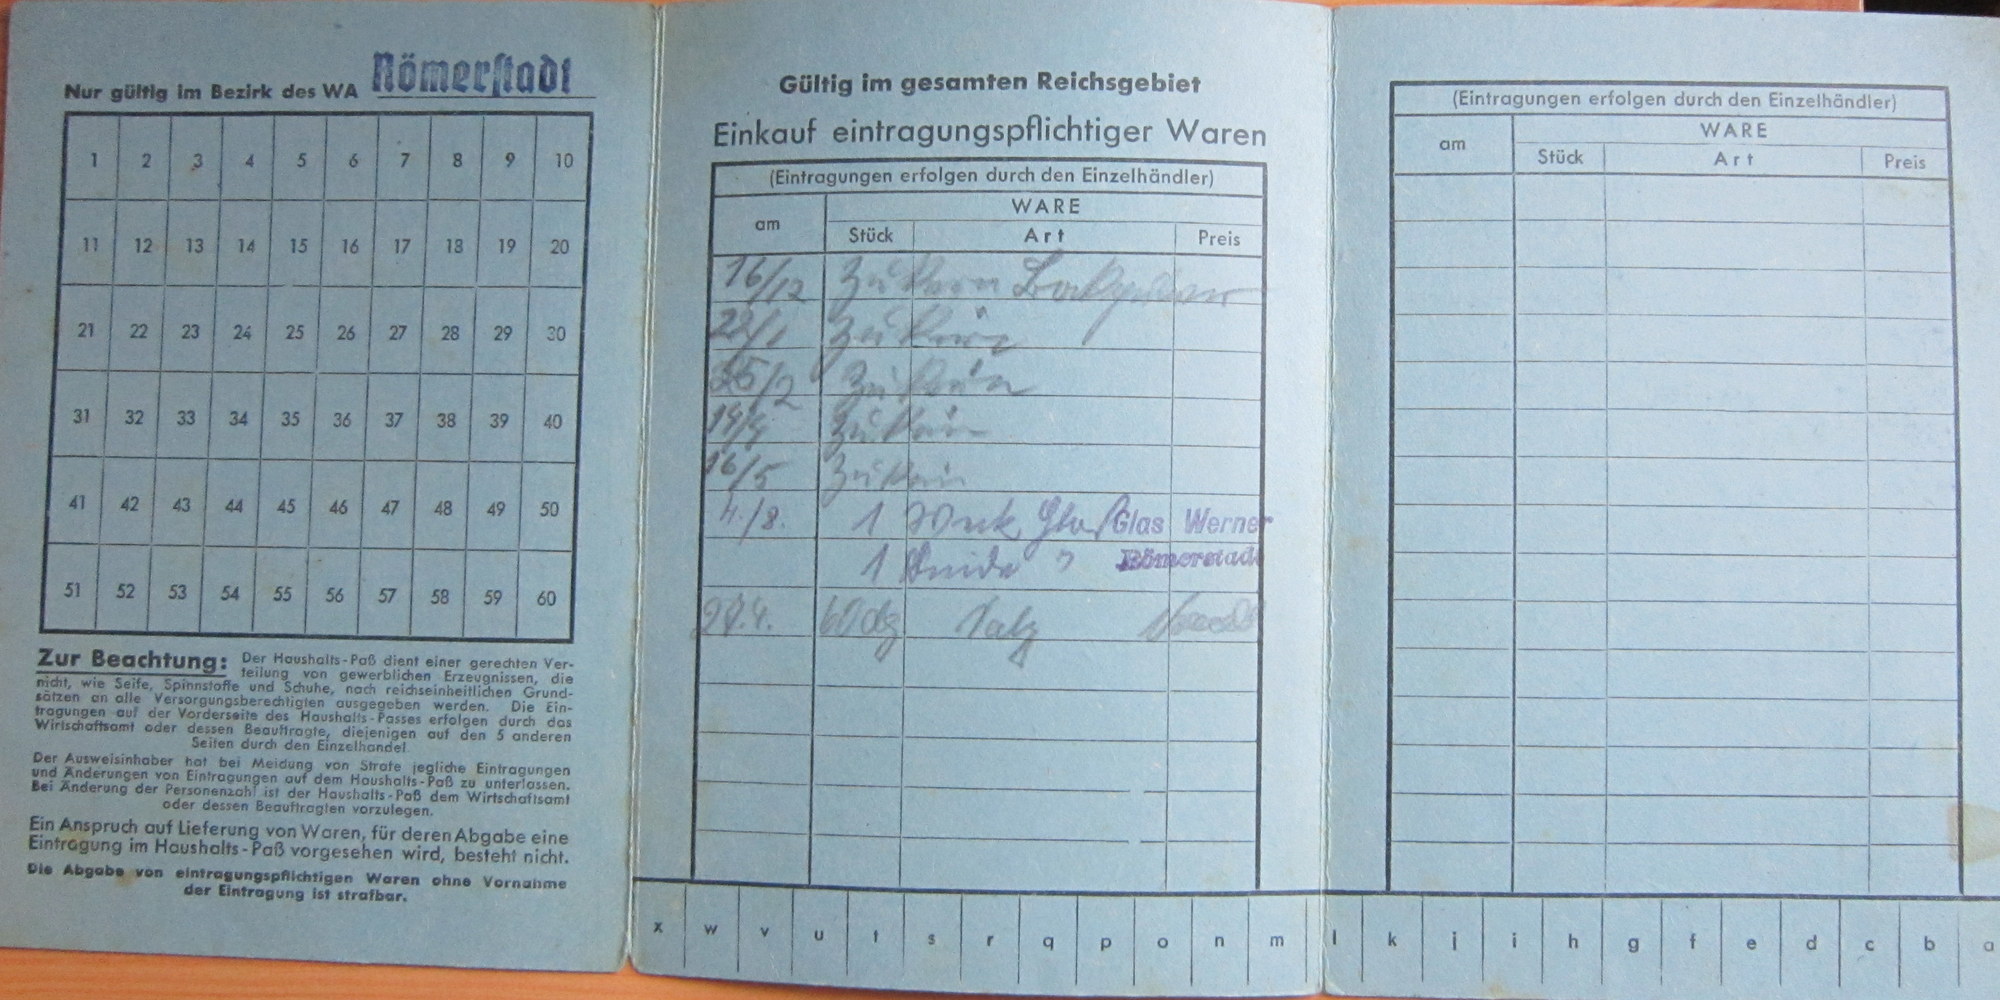 Nur gültig im Bezirk des WA Römerstadt
1 2 3 4 5 6 7 8 9 10
11 12 13 14 15 16 17 18 19 20
21 22 23 24 25 26 27 28 29 30
31 32 33 34 35 36 37 38 39 40
41 42 43 44 45 46 47 48 49 50
51 52 53 54 55 56 57 58 59 60
Zur Beachtung: Der Haushalts-Paß dient einer gerechten Ver-
teilung von gewerblichen Erzeugnissen, die
nicht, wie Seife, Spinnstoffe und Schuhe, nach reichseinheitlichen Grund-
sätzen an alle Versorgungsberechtigten ausgegeben werden. Die Ein-
tragungen auf der Vorderseite des Haushalts-Passes erfolgen durch das
Wirtschaftsamt oder dessen Beauftragte, diejenigen auf den 5 anderen
Seiten durch den Einzelhandel.
Der Ausweisinhaber hat bei Meidung von Strafe jegliche Eintragungen
und Änderungen von Eintragungen auf dem Haushalts-Paß zu unterlassen.
Bei Änderung der Personenzahl ist der Haushalts-Paß dem Wirtschaftsamt
oder dessen Beauftragten vorzulegen.
Ein Anspruch auf Lieferung von Waren, für deren Abgabe eine
Eintragung im Haushalts-Paß vorgesehen wird, besteht nicht.
Die Abgabe von eintragungspflichtigen Waren ohne Vornahme
der Eintragung ist strafbar.
Gültig im gesamten Reichsgebiet
Einkauf eintragungspflichtiger Waren
(Eintragungen erfolgen durch den Einzelhändler)
am
WARE
Stück Art Preis
16/12
22/1
25/2
14/4
16/5
4./8. 1 Glas Werner
1 Römerstadt
60 dg
x w v u t s r q p o n m
(Eintragungen erfolgen durch den Einzelhändler)
am
WARE
Stück Art Preis
l k j i h g f e d c b a